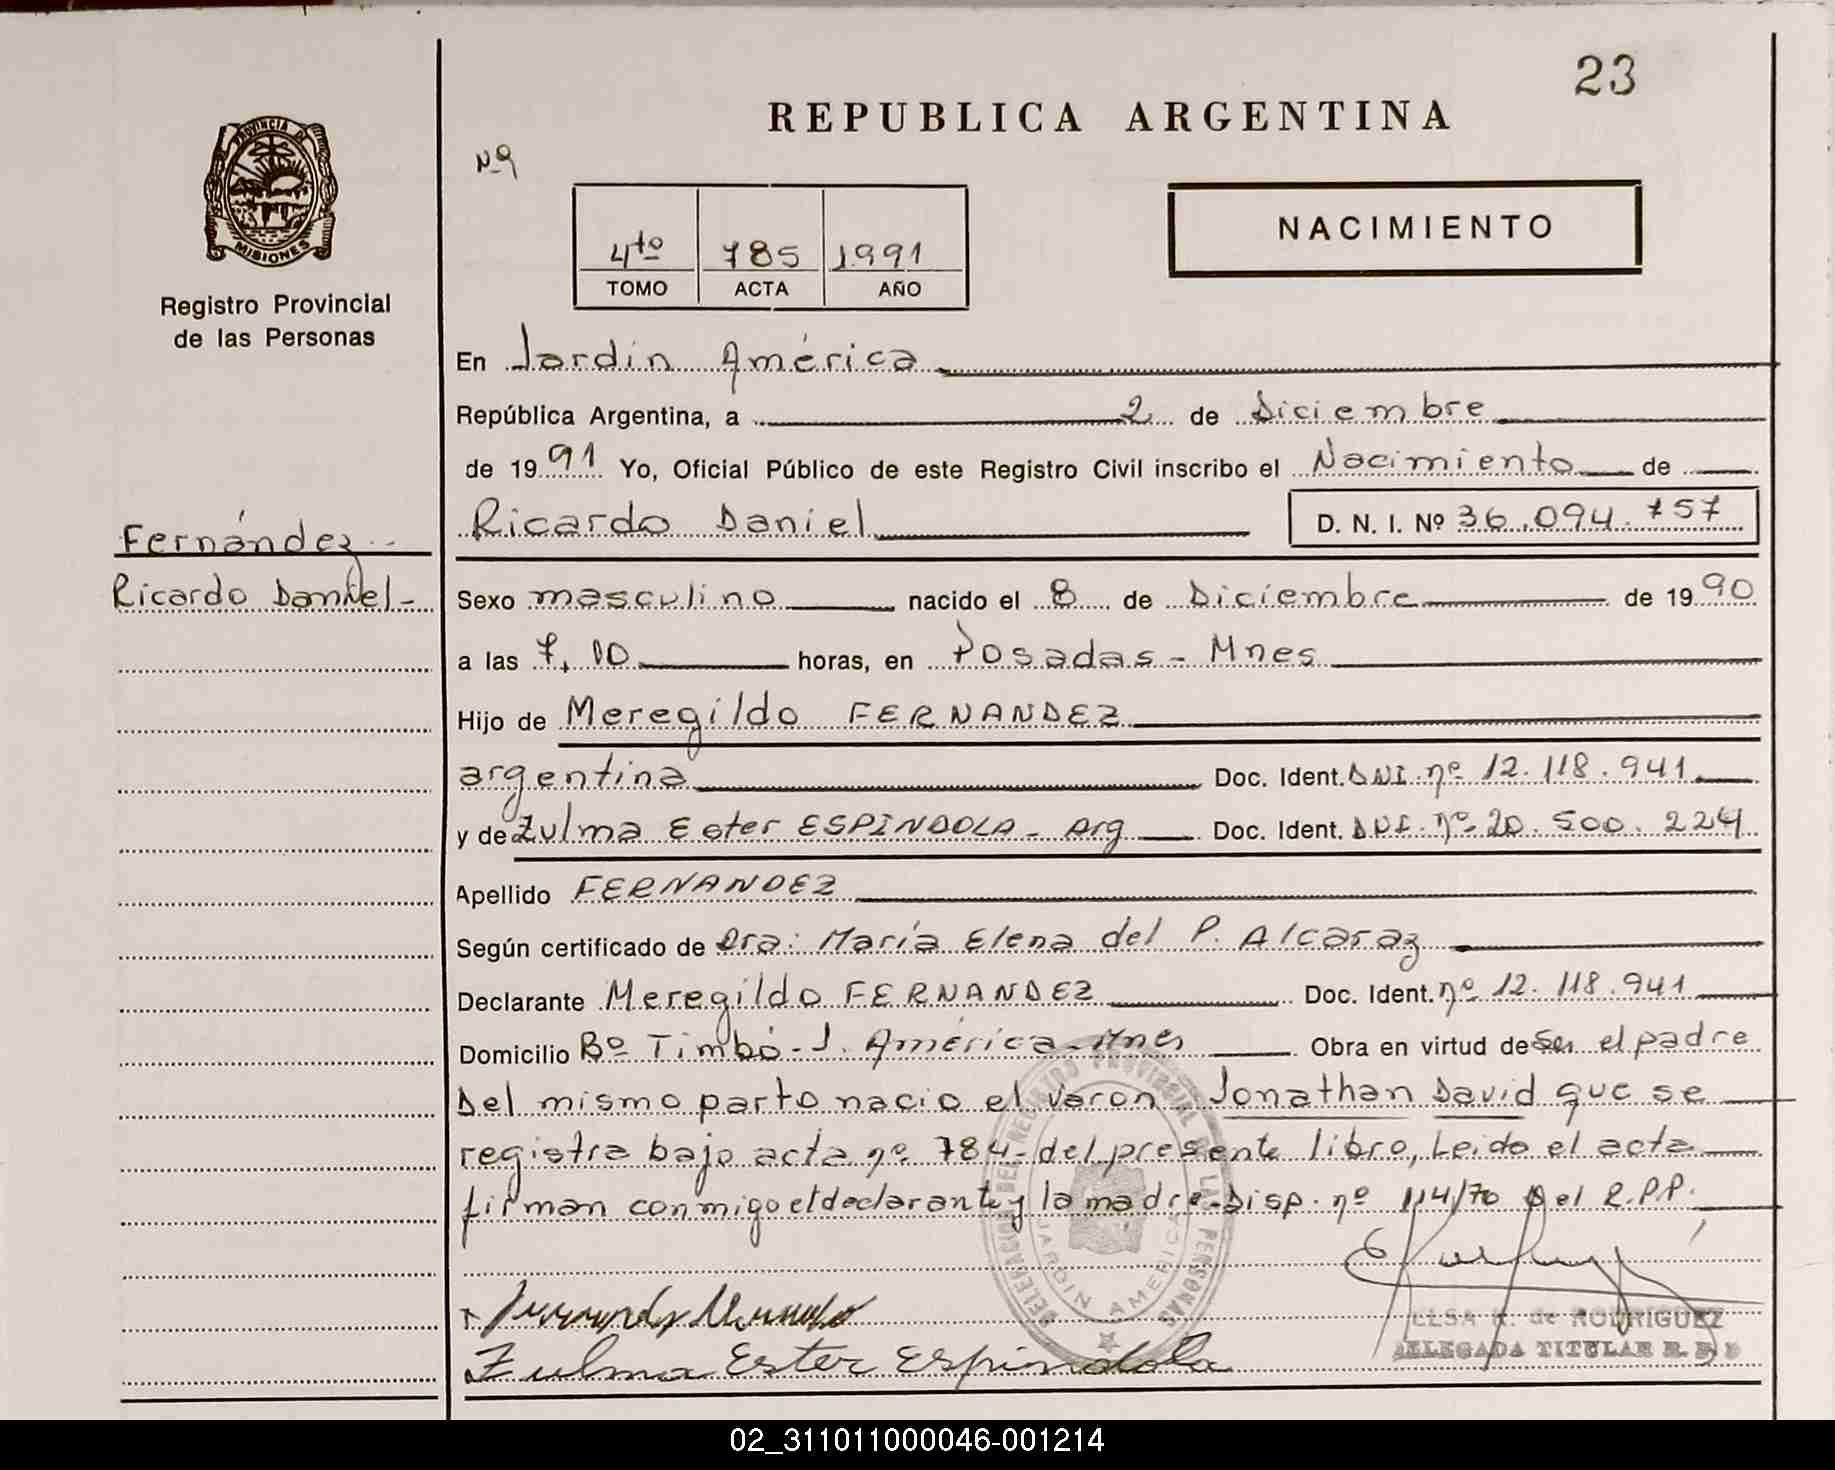 23
REPUBLICA ARGENTINA
Nº
4to 785 1991
TOMO ACTA AÑO
NACIMIENTO
PROVINCIA DE
MISIONES
Registro Provincial
de las Personas
Fernández
Ricardo Daniel -
En Jardín América
República Argentina, a 2 de Diciembre
de 1991 Yo, Oficial Público de este Registro Civil inscribo el Nacimiento de
Ricardo Daniel D. N. I. Nº 36.094.757
Sexo masculino nacido el 8 de Diciembre de 1990
a las 7,00 horas, en Posadas - Mnes
Hijo de Meregildo FERNANDEZ
argentina Doc. Ident. DNI. nº 12.118.941
y de Zulma Ester ESPINDOLA - Arg Doc. Ident. DNI. nº 20.500.224
Apellido FERNANDEZ
Según certificado de Dra: María Elena del P. Alcaraz
Declarante Meregildo FERNANDEZ Doc. Ident. nº 12.118.941
Domicilio Bº Timbó - J. América - Mnes Obra en virtud de ser el padre
Del mismo parto nacio el varon Jonathan David que se
registra bajo acta nº 784 - del presente libro, Leido el acta
firman conmigo el declarante y la madre - Disp. nº 114/70 del R.P.P.
DELEGACION DEL REGISTRO PROVINCIAL DE LAS PERSONAS
JARDIN AMERICA
Zulma Ester Espindola
ELSA R. de RODRIGUEZ
DELEGADA TITULAR R. P. P.
02_311011000046-001214